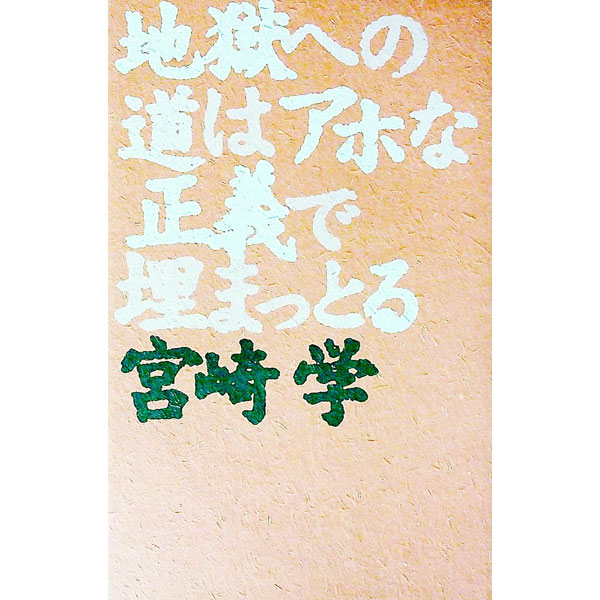 地獄への
道はアホな
正義で
埋まっとる
宮崎 学